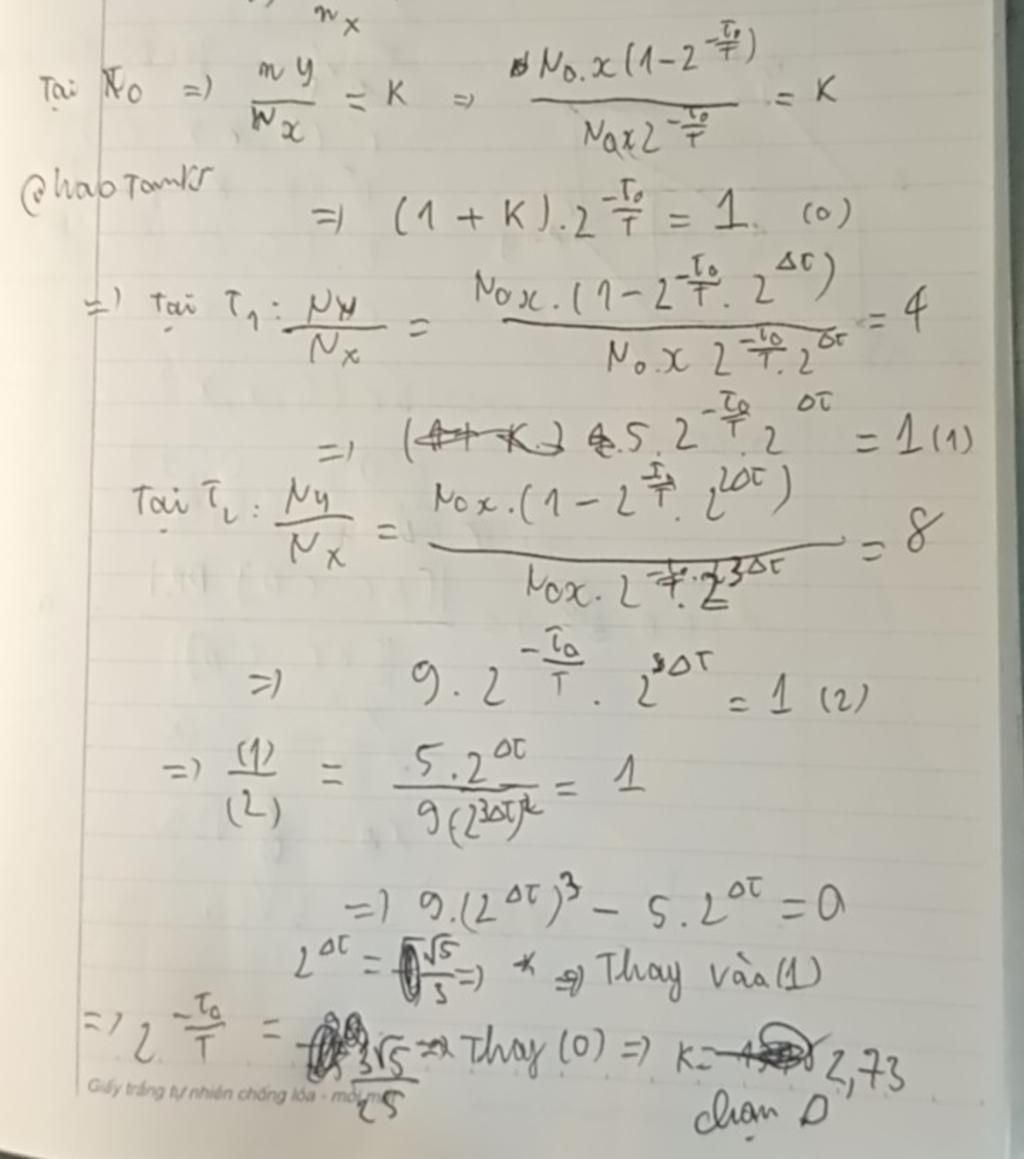 n_x
Tại T_0 => \frac{n y}{N_x} = K => \frac{N_0.x(1-2^{-\frac{T_0}{T}})}{N_0x2^{-\frac{T_0}{T}}} = K
@haoTamKS
=> (1 + K).2^{-\frac{T_0}{T}} = 1. (0)
=> Tại T_1 : \frac{N_y}{N_x} = \frac{N_0x.(1-2^{-\frac{T_0}{T}}.2^{ΔT})}{N_0.x 2^{-\frac{T_0}{T}}.2^{ΔT}} = 4
=> 5.2^{-\frac{T_0}{T}}.2^{ΔT} = 1 (1)
Tại T_2 : \frac{N_y}{N_x} = \frac{N_0x.(1-2^{-\frac{T_0}{T}}.2^{2ΔT})}{N_0x.2^{-\frac{T_0}{T}}.2^{3ΔT}} = 8
=> 9.2^{-\frac{T_0}{T}}.2^{3ΔT} = 1 (2)
=> \frac{(1)}{(2)} = \frac{5.2^{ΔT}}{9(2^{3ΔT})} = 1
=> 9.(2^{ΔT})^3 - 5.2^{ΔT} = 0
2^{ΔT} = \frac{\sqrt{5}}{3} => * => Thay vào (1)
=> 2^{-\frac{T_0}{T}} = \frac{3\sqrt{5}}{25} => Thay (0) => K = 2,73
Giấy trắng tự nhiên chống lóa - mỏi m
chọn D